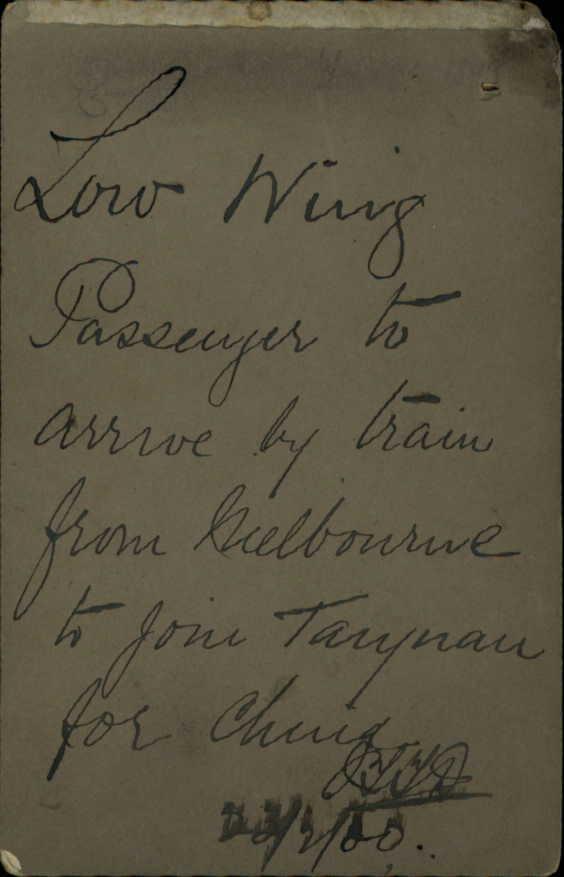 Low Wing
Passenger to
arrive by train
from Melbourne
to join Taiyuan
for China